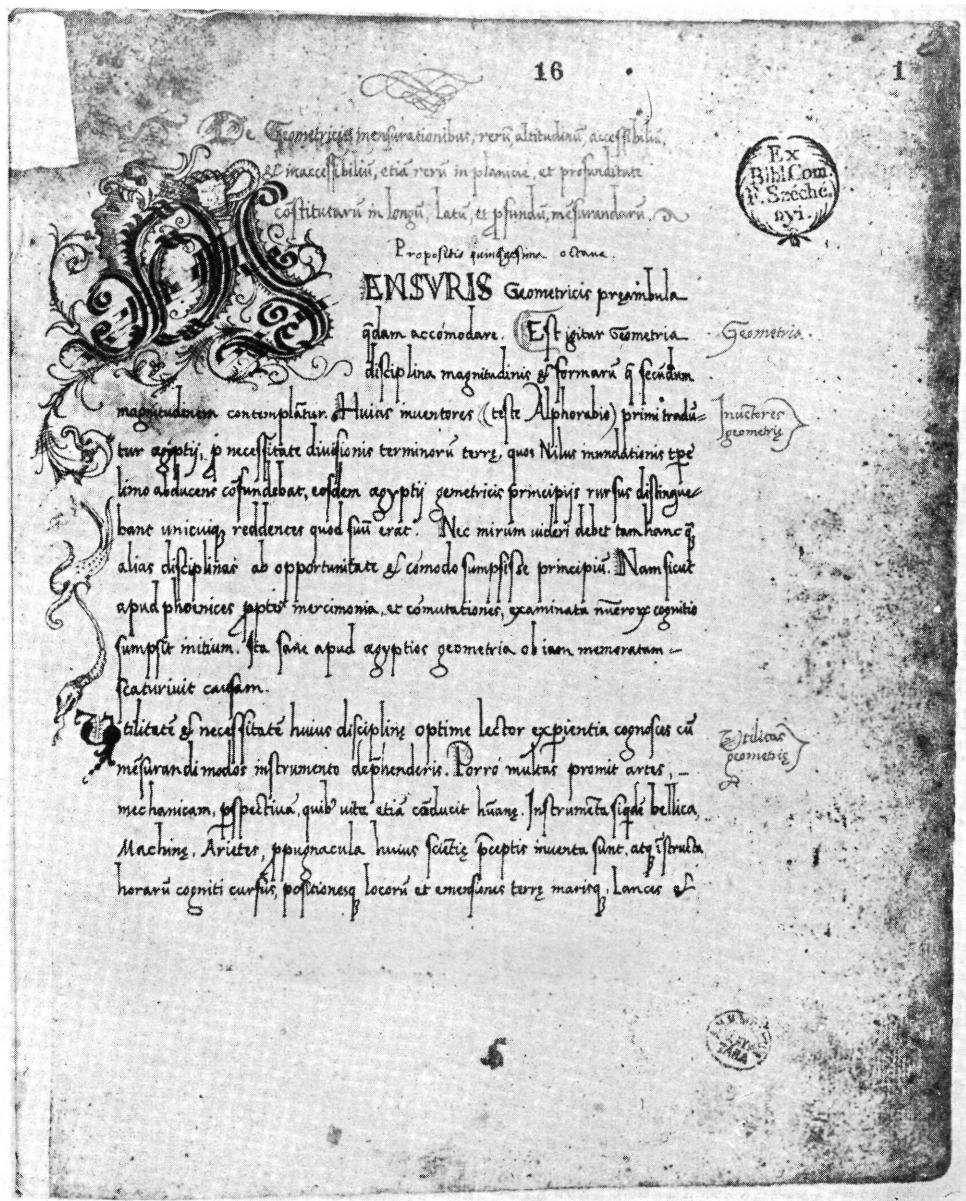 16
1
De Geometricis mensurationibus, rerū altitudinū, accessibiliū,
et inaccessibiliū, etiā rerū in planicie, et profunditate
cōstitutarū in longū, latū, et pfundū, mēsurandarū.
Ex
Bibl. Com.
F. Széché
nyi.
Propositio quinqgesima octaua.
MENSVRIS Geometricis preambula
qdam accomodare. Est igitur Geometria
Geometria
disciplina magnitudinis & formarū q secūdum
magnitudinem contemplātur. Huius inuentores (teste Alphorabio) primi tradū-
Inuētores
geometrię
tur ægyptij, p necessitate diuisionis terminorū terrę, quos Nilus inundationis tpe
limo abducens cōfundebat, eosdem ægyptij gemetricis principijs rursus distingue-
bant unicuiq reddentes quod suū erat. Nec mirum uideri debet tam hanc q
alias disciplinas ab opportunitate & cōmodo sumpsisse principiū. Nam sicut
apud phœnices ppter mercimonia, et cōmutationes, examinata nūerorx cognitio
sumpsit initium. Ita sane apud ægyptios geometria ob iam memoratam -
scaturiuit causam.
Vtilitatē & necessitatē huius disciplinę optime lector expientia cognosces cū
Vtilitas
geometrię
mēsurandi modos instrumento dephenderis. Porro multas promit artes, -
mechanicam, pspectiuā, quib vita etiā cōducit hūanę. Instrumēta siqdē bellica,
Machinę, Arietes, ppugnacula huius sciētię pceptis inuenta sunt, atq īstructa
horarū cogniti cursus, positionesq locorū et emensiones terrę marisq, Lancis &